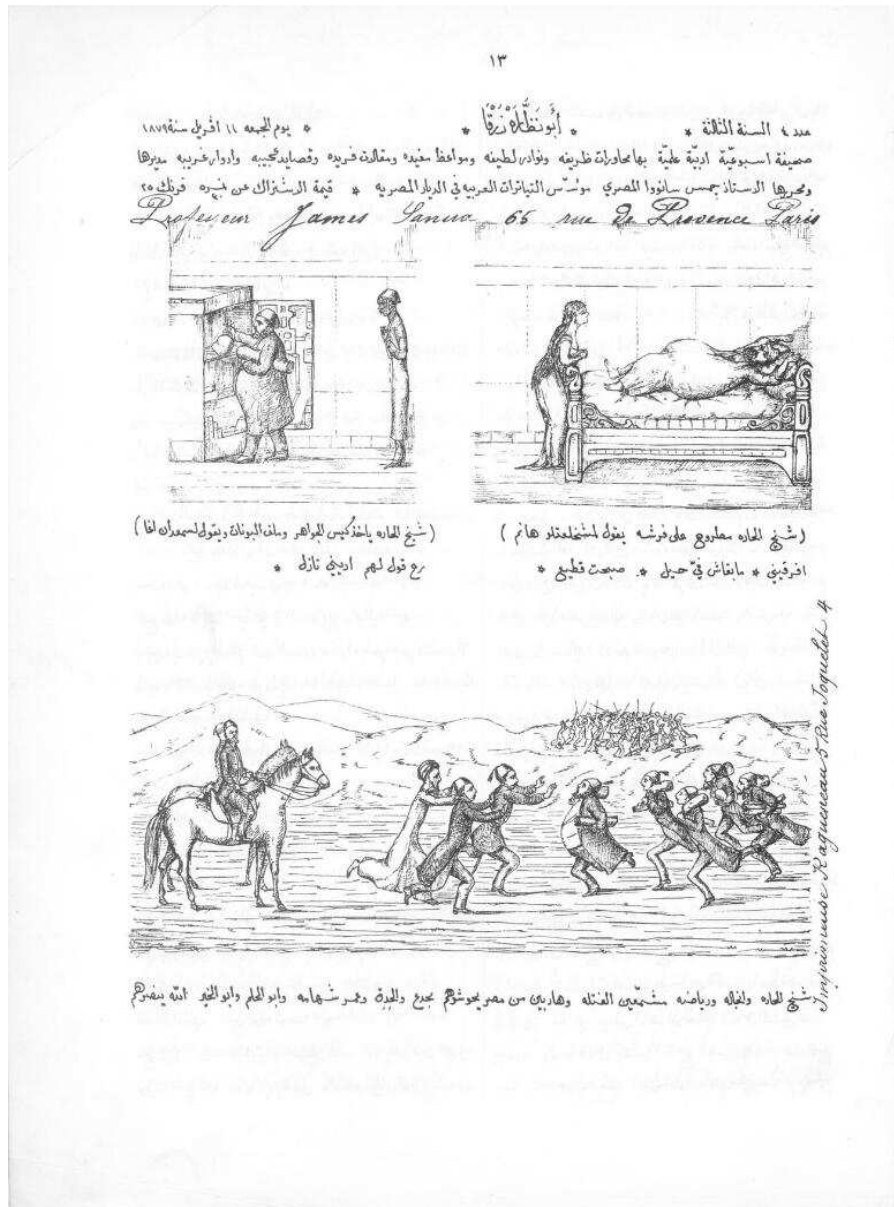 ١٣
عدد ٤ السنة الثالثة * أبو نظّارة زرقا * يوم الجمعه ١١ افريل سنة ١٨٧٩
صحيفة اسبوعيّة ادبيّة علميّة بها محاورات ظريفه ونوادر لطيفه ومواعظ مفيده ومقالات فريده وقصايد عجيبه وادوار غريبه مديرها
ومحررها الاستاذ جمس سانووا المصري مؤسّس التياترات العربيه في الديار المصريه * قيمة الاشتراك عن سنه فرنك ٢٥
Professeur James Sanua 65 rue de Provence Paris
(شيخ الحاره مطروح على فرشه يقول لمشخلعتلو هانم)
افرقيني * مابقاش فيّ حيل * صبحت قطيع *
(شيخ الحاره ياخذ كيس الجواهر وملف البونات ويقول لسعدان اغا)
رح قول لهم اديني نازل *
شيخ الحاره والخاله ورياضه مشمّعين الفتله وهاربين من مصر يحوشوهم بجدع والحدق وعمر شهامه وابو الحلم وابو الخير الله ينصرهم
Imprimeuse Ragueneau 5 Rue Joquelet 4